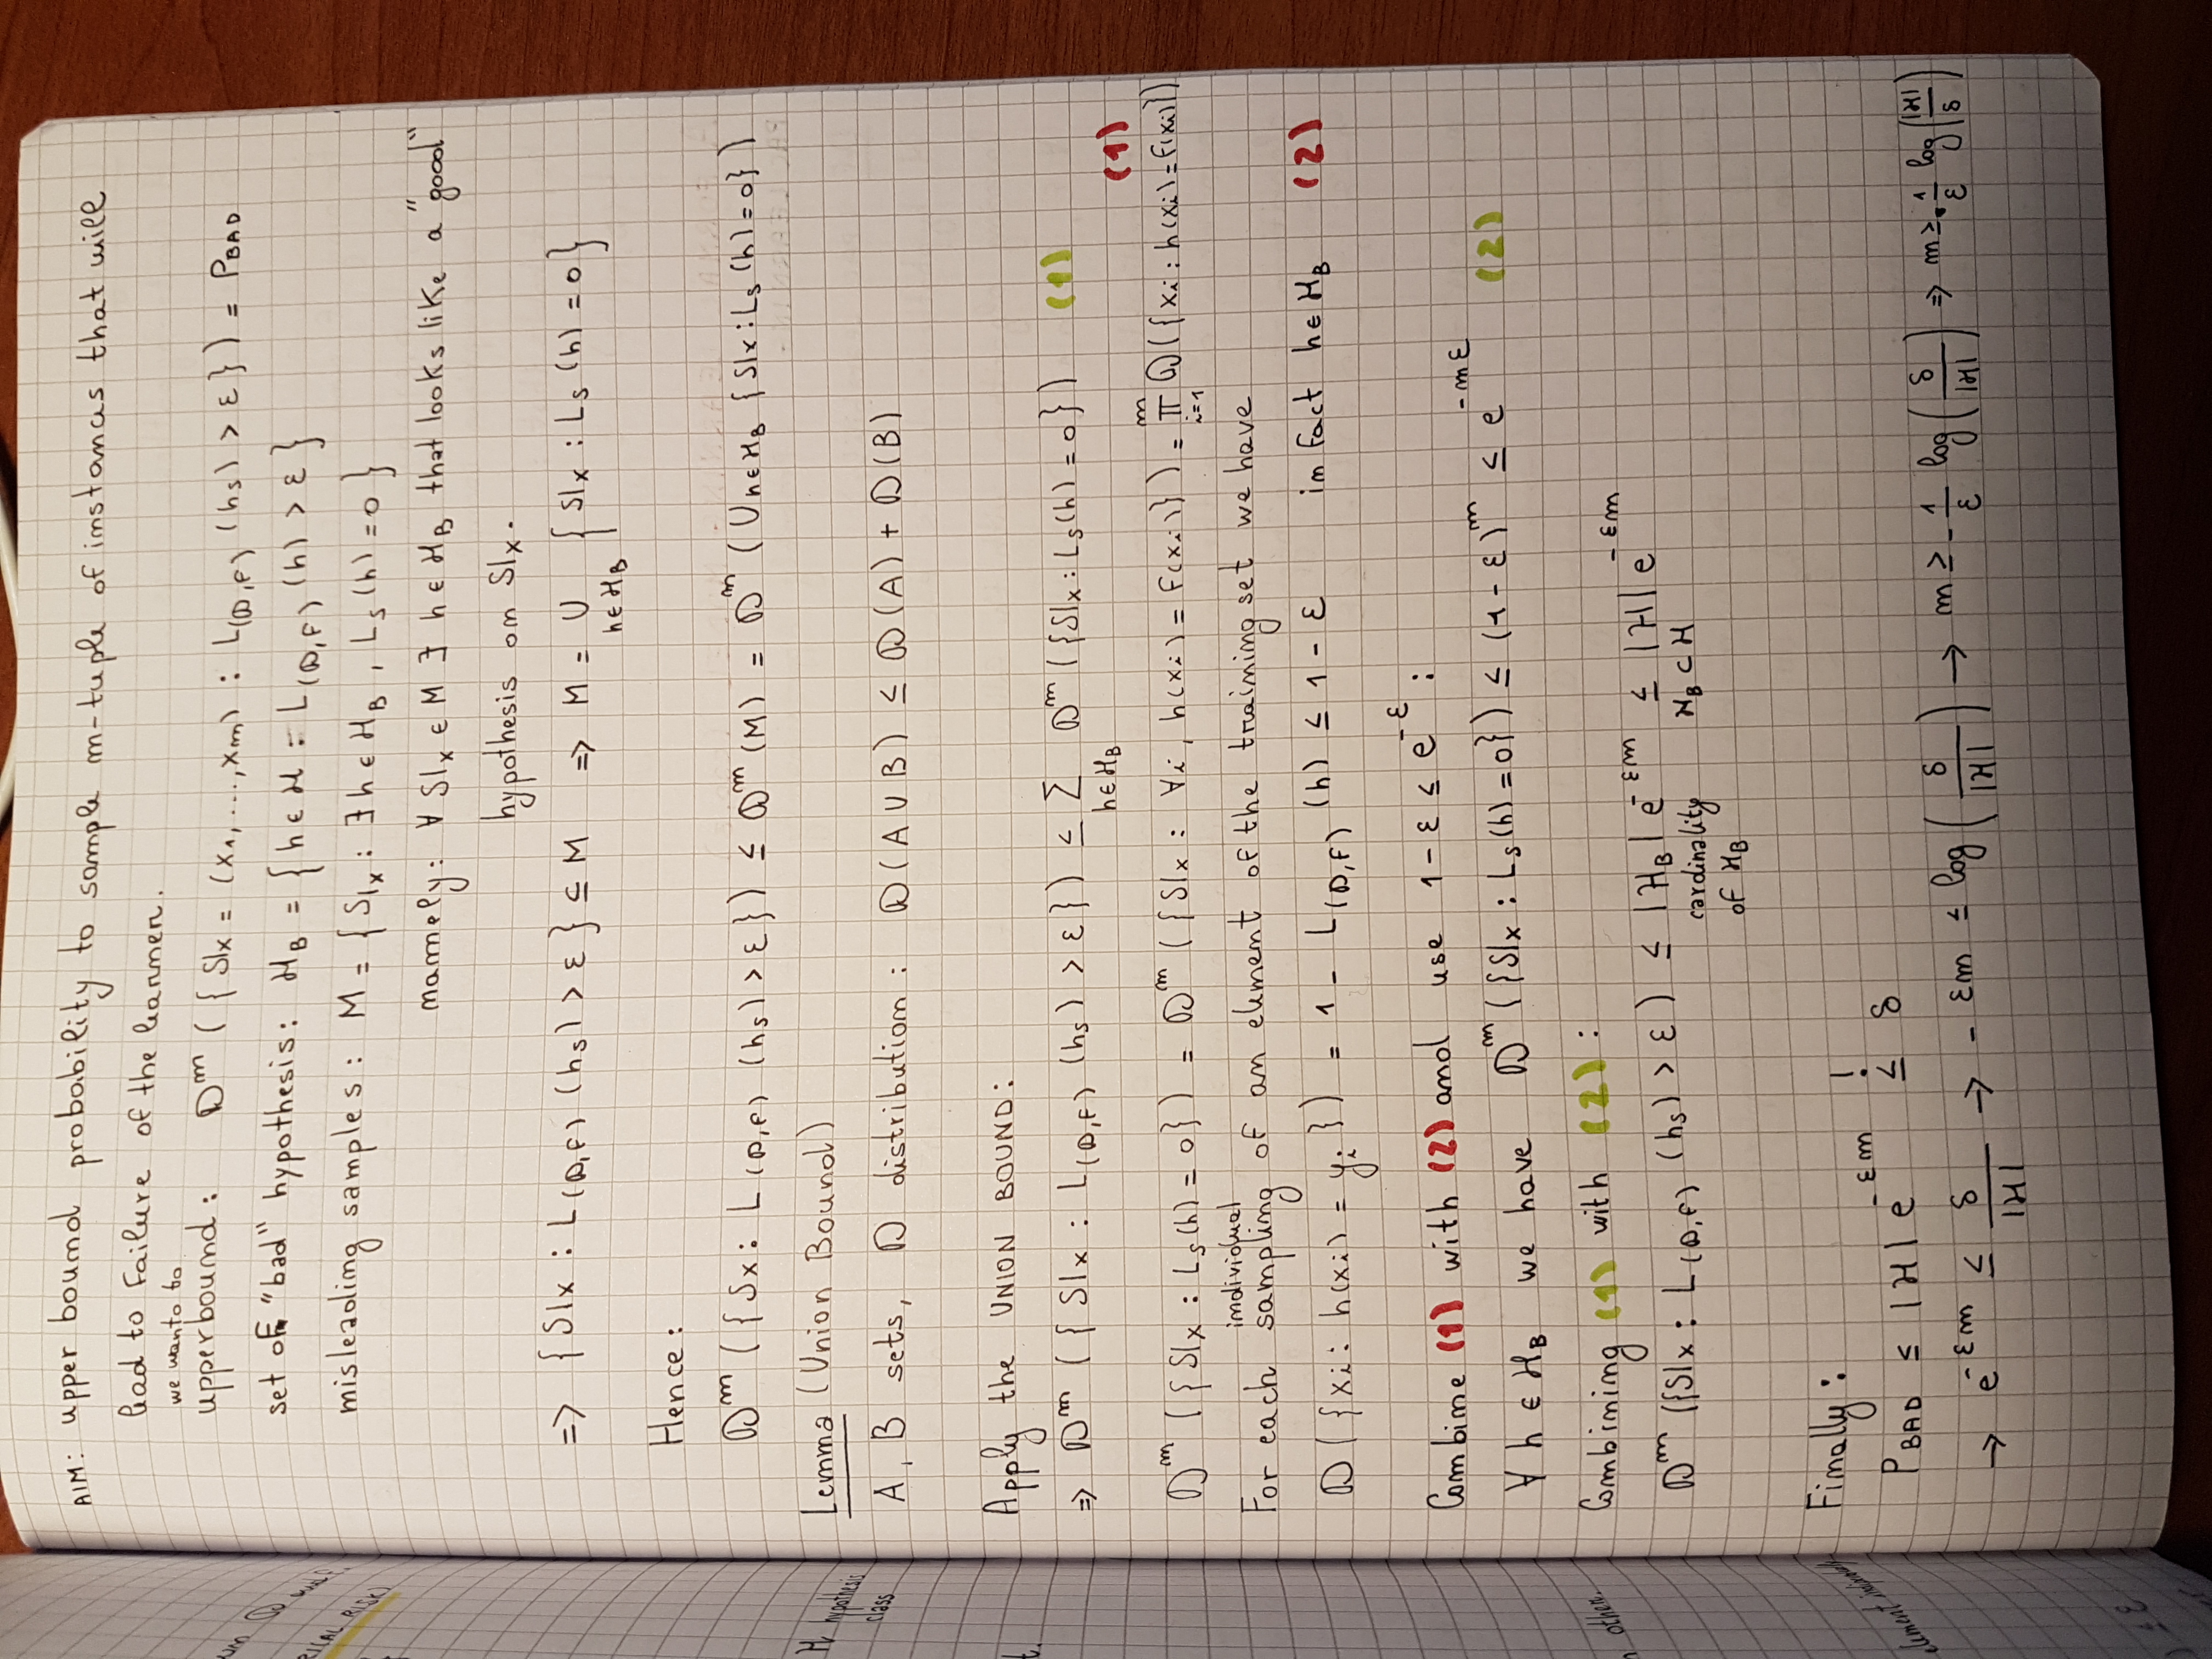 AIM: upper bound probability to sample m-tuple of instances that will
lead to failure of the learner.
we wanto to
upperbound: D^m ({S|x = (x₁,...,xₘ) : L(D,F) (hₛ) > ε}) = P_BAD
set of "bad" hypothesis: H_B = {h ∈ H : L(D,F) (h) > ε}
misleading samples: M = {S|x : ∃ h ∈ H_B , Lₛ(h) = 0}
namely: ∀ S|x ∈ M ∃ h ∈ H_B that looks like a "good"
hypothesis on S|x.
=> {S|x : L(D,F) (hₛ) > ε} ⊆ M => M = ∪_{h∈H_B} {S|x : Lₛ(h) = 0}
Hence:
D^m ({Sx : L(D,F) (hₛ) > ε}) ≤ D^m (M) = D^m (∪h∈H_B {S|x : Lₛ(h) = 0})
Lemma (Union Bound)
A, B sets, D distribution : D(A ∪ B) ≤ D(A) + D(B)
Apply the UNION BOUND:
=> D^m ({S|x : L(D,F) (hₛ) > ε}) ≤ Σ_{h∈H_B} D^m ({S|x : Lₛ(h) = 0}) (1)
(1)
D^m ({S|x : Lₛ(h) = 0}) = D^m ({S|x : ∀i, h(xᵢ) = F(xᵢ)}) = ∏_{i=1}^m D({xᵢ : h(xᵢ) = F(xᵢ)})
individual
For each sampling of an element of the training set we have
D({xᵢ : h(xᵢ) = yᵢ}) = 1 - L(D,F) (h) ≤ 1 - ε in fact h ∈ H_B (2)
Combine (1) with (2) and use 1 - ε ≤ e^{-ε} :
∀ h ∈ H_B we have D^m ({S|x : Lₛ(h) = 0}) ≤ (1 - ε)^m ≤ e^{-mε} (2)
Combining (1) with (2) :
D^m ({S|x : L(D,F) (hₛ) > ε) ≤ |H_B| e^{-εm} ≤ |H| e^{-εm}
cardinality H_B ⊂ H
of H_B
Finally:
P_BAD ≤ |H| e^{-εm} !≤ δ
→ e^{-εm} ≤ δ/|H| → - εm ≤ log(δ/|H|) → m ≥ - 1/ε log(δ/|H|) => m ≥ 1/ε log(|H|/δ)
H hypothesis
class
t.
other.
element individually